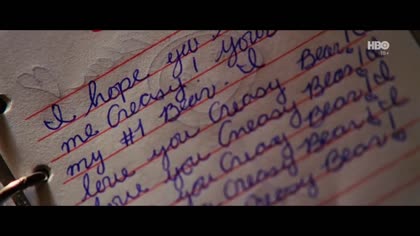 HBO
I hope you
me Creasy! Your
my #1 Bear. I
love you Creasy Bear! I
love you Creasy Bear! I
you Creasy Bear! I
Creasy Bear!